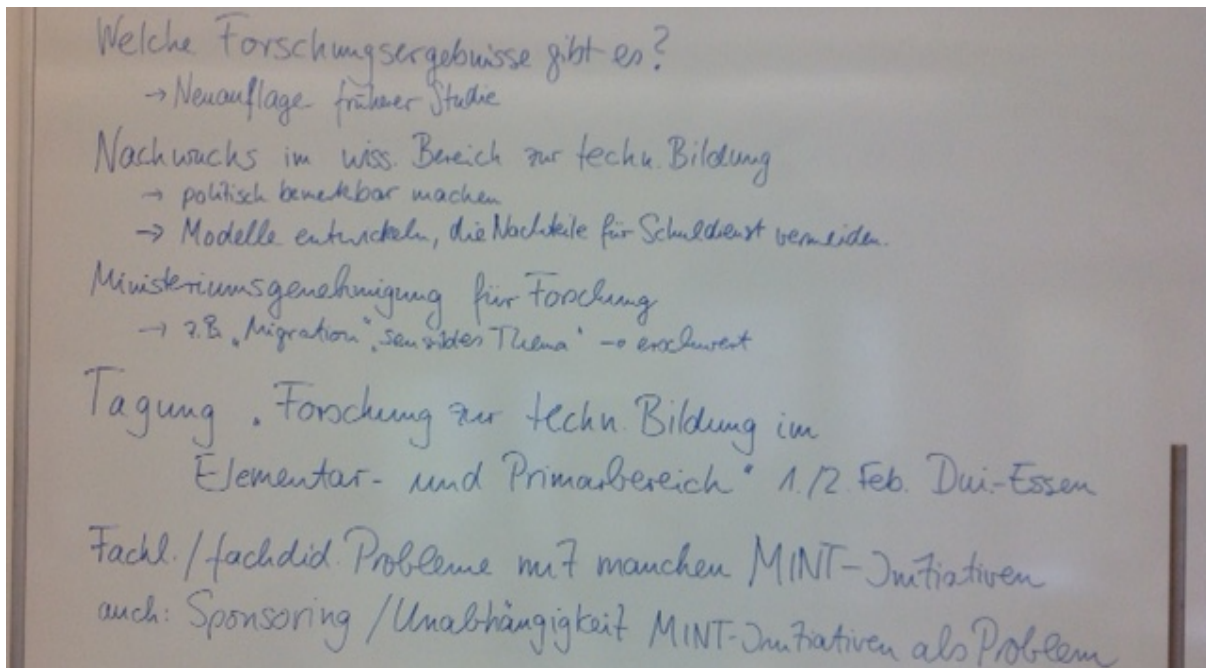 Welche Forschungsergebnisse gibt es?
→ Neuauflage früherer Studie
Nachwuchs im wiss. Bereich zur techn. Bildung
→ politisch bemerkbar machen
→ Modelle entwickeln, die Nachteile für Schuldienst vermeiden.
Ministeriumsgenehmigung für Forschung
→ z.B. „Migration“ „sensibles Thema“ → erschwert
Tagung „Forschung zur techn. Bildung im
Elementar- und Primarbereich“ 1./2. Feb. Dui.-Essen
Fachl./fachdid. Probleme mit manchen MINT-Initiativen
auch: Sponsoring/Unabhängigkeit MINT-Initiativen als Problem